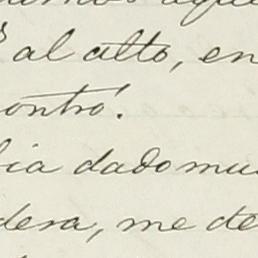 al alto, en
ontró.
bia dado muc
dera, me de